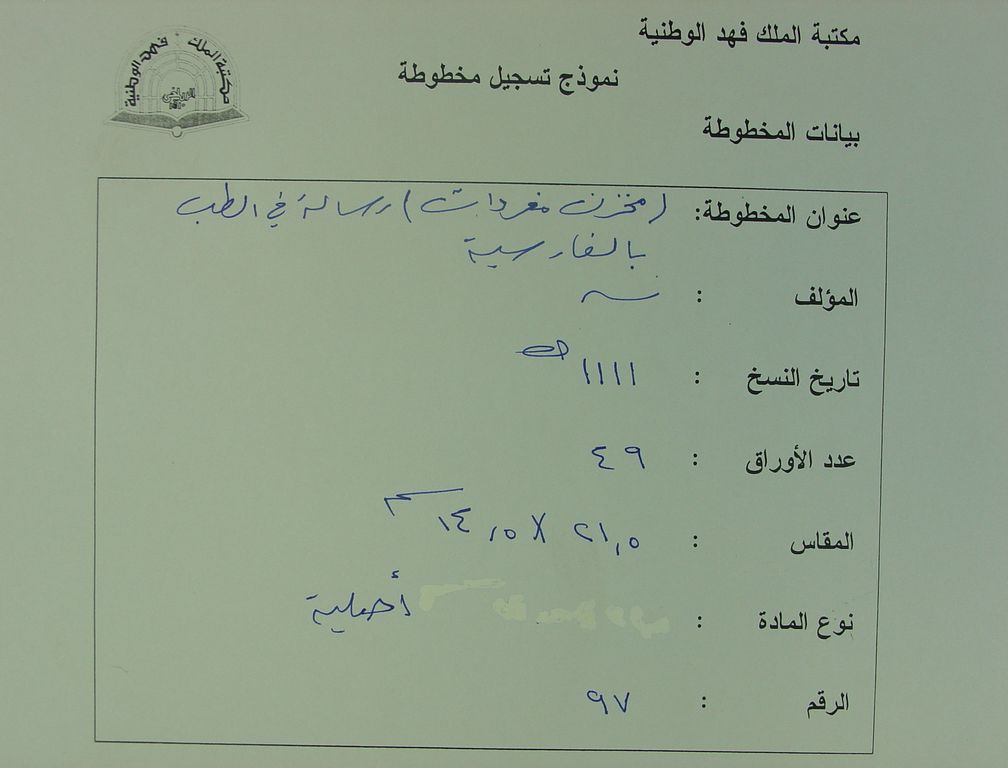 مكتبة الملك فهد الوطنية
مكتبة الملك فهد الوطنية
الرياض
نموذج تسجيل مخطوطة
بيانات المخطوطة
عنوان المخطوطة: (مخزن مفردات) رسالة في الطب
بالفارسية
المؤلف :
تاريخ النسخ : ١١١١ هـ
عدد الأوراق : ٤٩
المقاس : ٢١,٥ X ١٤,٥ سم
نوع المادة : أصلية
الرقم : ٩٧